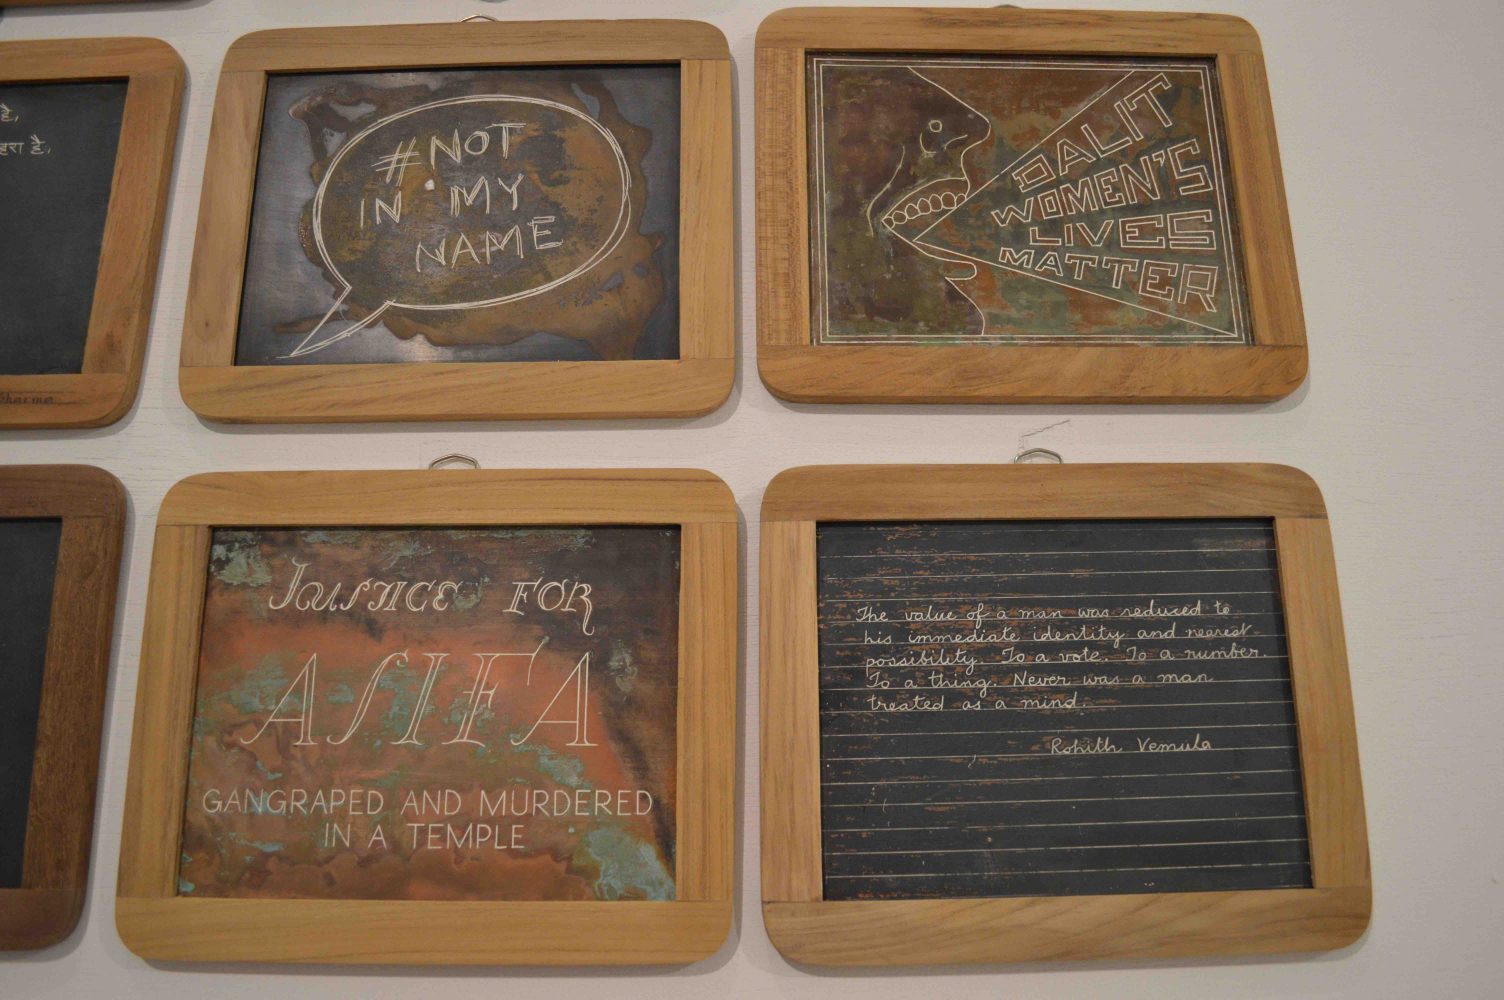 है,
है,
#NOT
IN MY
NAME
DALIT
WOMEN'S
LIVES
MATTER
JUSTICE FOR
ASIFA
GANGRAPED AND MURDERED
IN A TEMPLE
The value of a man was reduced to
his immediate identity and nearest
possibility. To a vote. To a number.
To a thing. Never was a man
treated as a mind.
Rohith Vemula